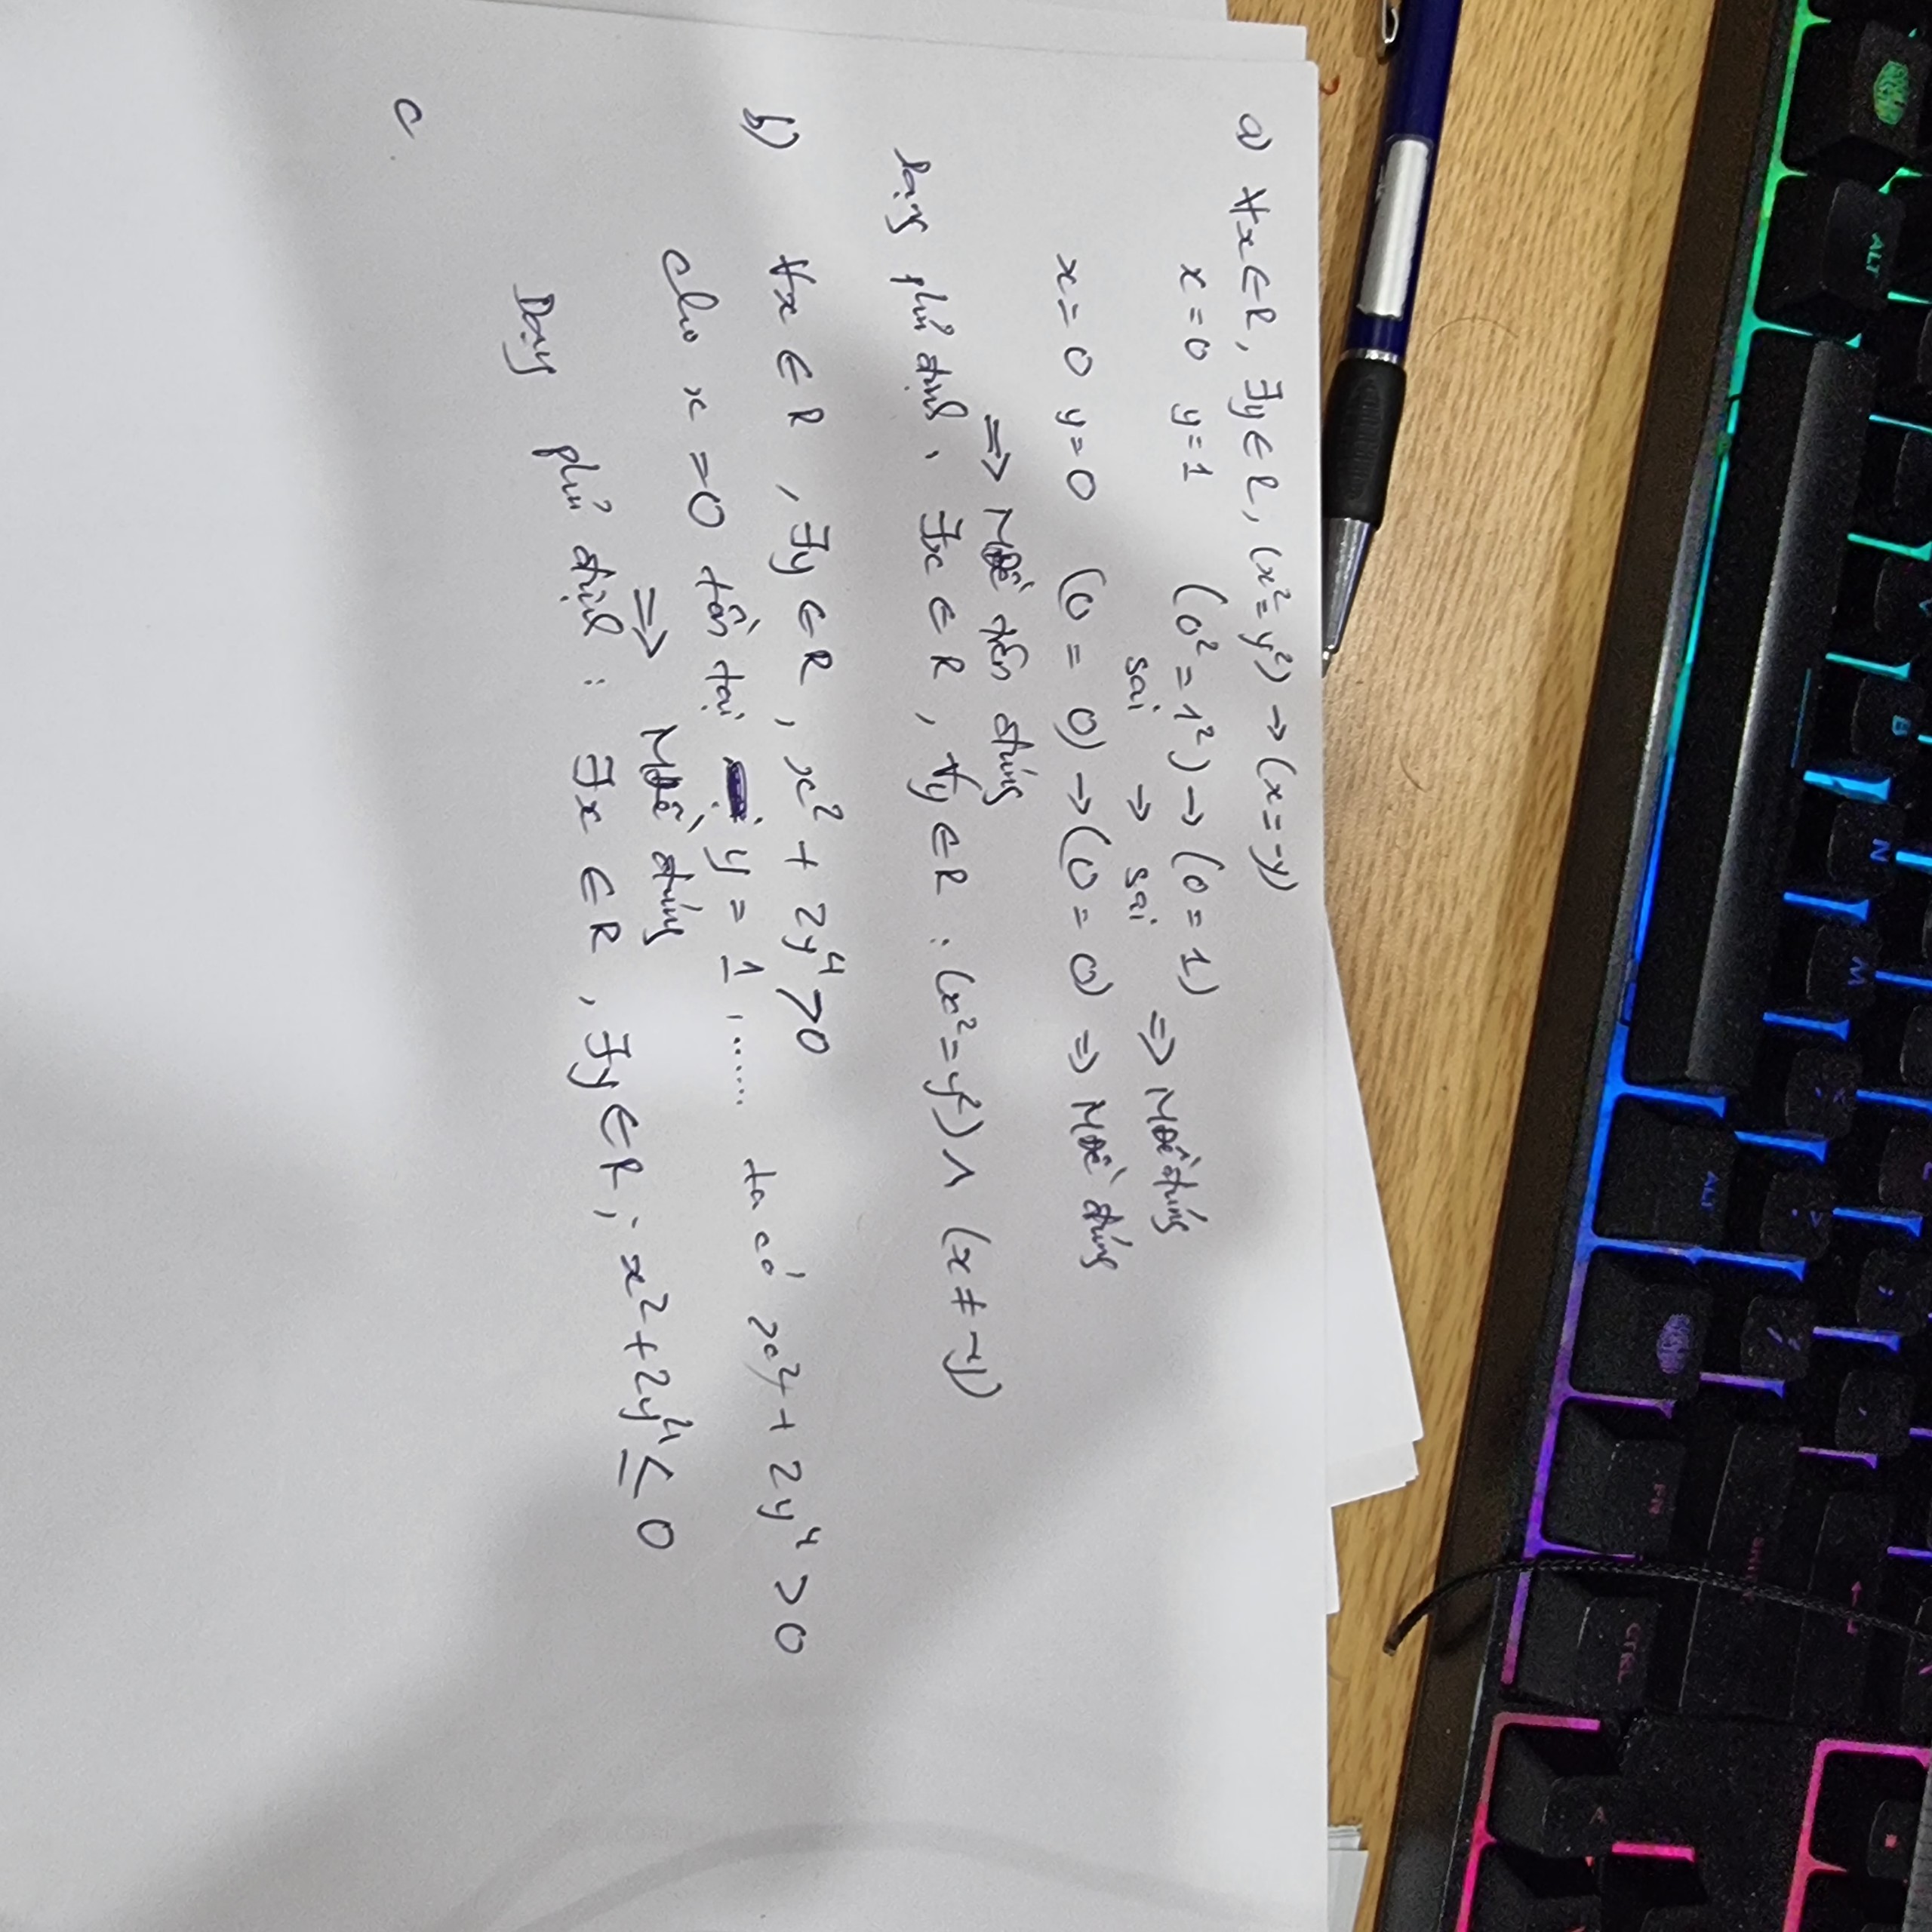 ALT
B
N
M
<
,
>
.
?
/
;
SHIFT
ALT
FN
CTRL
a) ∀x ∈ R, ∃y ∈ R, (x² = y²) → (x = -y)
x = 0 y = 1 (0² = 1²) → (0 = 1)
sai → sai => MĐề đúng
x = 0 y = 0 (0 = 0) → (0 = 0) => MĐề đúng
=> MĐề trên đúng
Dạng phủ định : ∃x ∈ R , ∀y ∈ R : (x² = y²) ∧ (x ≠ -y)
b) ∀x ∈ R , ∃y ∈ R , x² + 2y⁴ > 0
cho x = 0 tồn tại y = 1 , ...... ta có x² + 2y⁴ > 0
=> MĐề đúng
Dạng phủ định : ∃x ∈ R , ∃y ∈ R ; x² + 2y⁴ ≤ 0
c